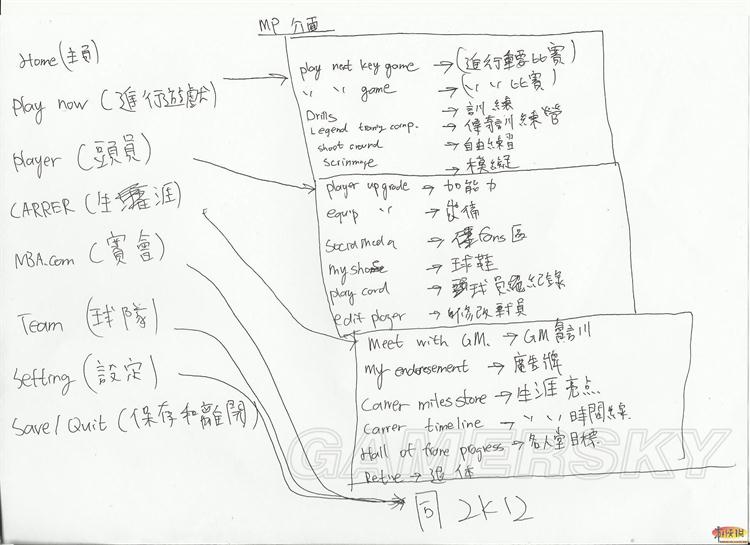 MP 介面
Home (主頁)
play now (進行遊戲)
player (球員)
CARRER (生涯)
NBA.com (賽會)
Team (球隊)
Setting (設定)
Save/Quit (保存和離開)
play next key game → (進行重要比賽)
〃 〃 game → (〃 〃 比賽)
Drills → 訓練
Legend traning camp. → 傳奇訓練營
shoot around → 自由練習
Scrimmage → 模擬
player upgrade → 加能力
equip 〃 → 裝備
Social Media → fans 區
my shoe → 球鞋
play card → 球員總紀錄
edit player → 修改球員
Meet with GM. → GM 會訓
my endorsement → 廣告牌
Carrer milesstore → 生涯亮点
Carrer timeline → 〃 〃 時間線
Hall of frame progress → 名人堂目標
Retire → 退休
同 2K12
GAMERSKY